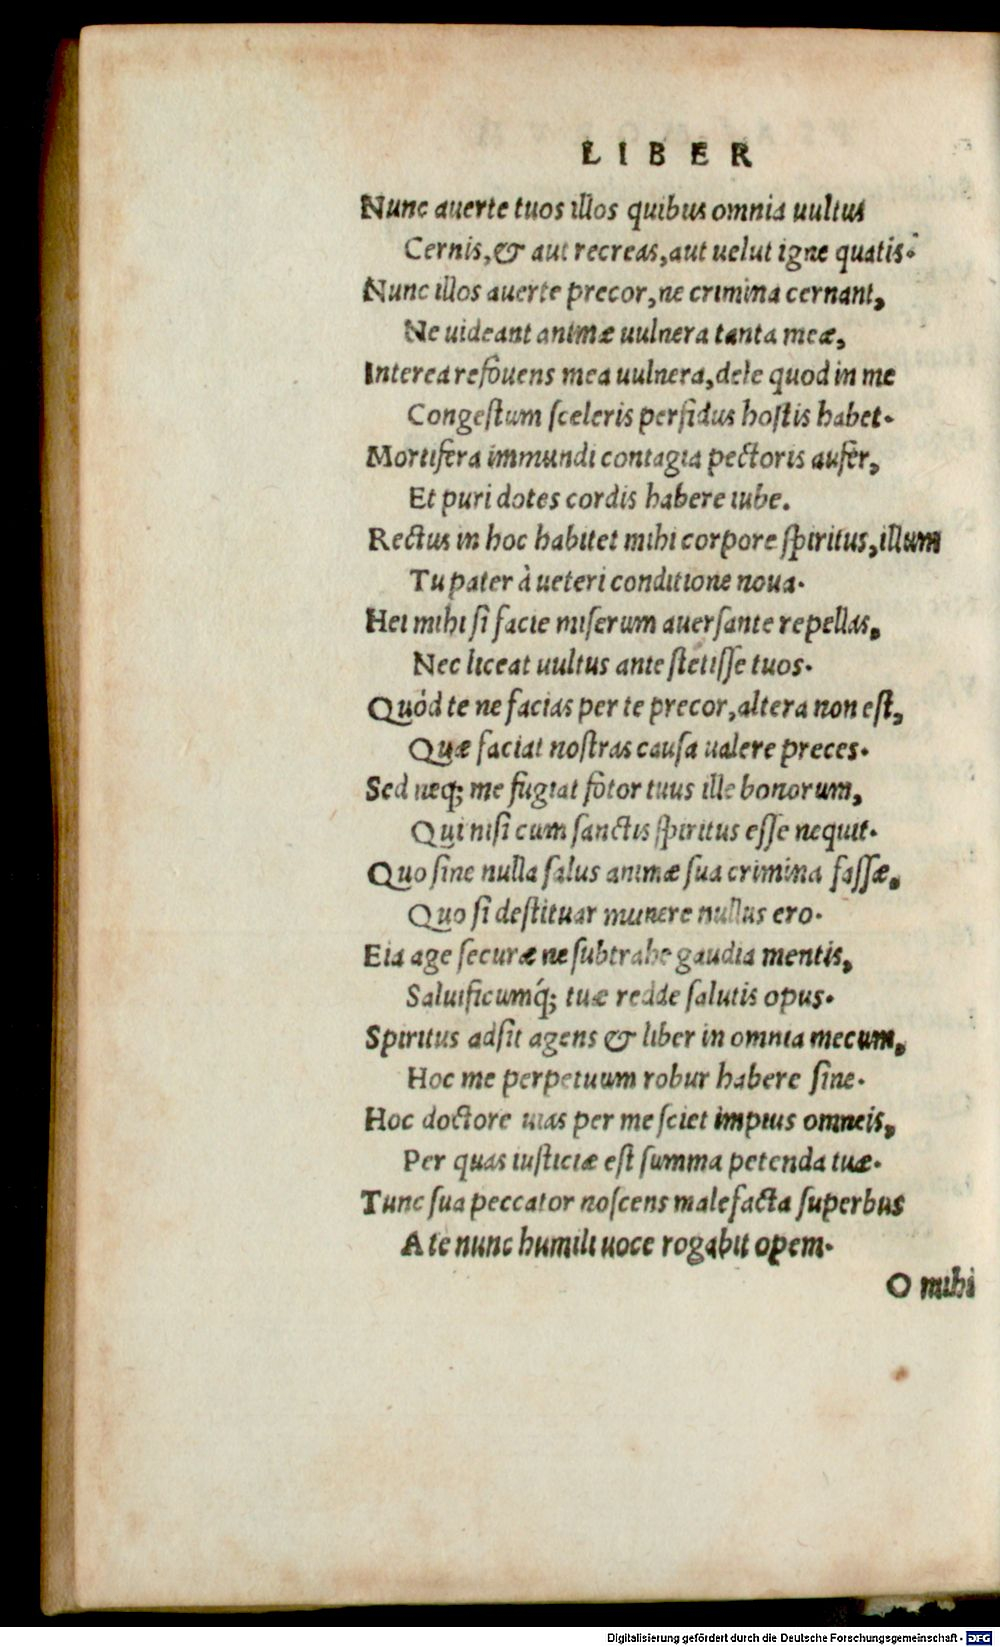 LIBER
Nunc auerte tuos illos quibus omnia uultus
Cernis, & aut recreas, aut uelut igne quatis.
Nunc illos auerte precor, ne crimina cernant,
Ne uideant animæ uulnera tanta meæ,
Interea refouens mea uulnera, dele quod in me
Congeſtum ſceleris perfidus hoſtis habet.
Mortifera immundi contagia pectoris aufer,
Et puri dotes cordis habere iube.
Rectus in hoc habitet mihi corpore ſpiritus, illum
Tu pater à ueteri conditione noua.
Hei mihi ſi facie miſerum auerſante repellas,
Nec liceat uultus ante ſtetiſſe tuos.
Quòd te ne facias per te precor, altera non eſt,
Quæ faciat noſtras cauſa ualere preces.
Sed neq; me fugiat fotor tuus ille bonorum,
Qui niſi cum ſanctis ſpiritus eſſe nequit.
Quo ſine nulla ſalus animæ ſua crimina faſſæ,
Quo ſi deſtituar munere nullus ero.
Eia age ſecuræ ne ſubtrahe gaudia mentis,
Saluificumq́; tuæ redde ſalutis opus.
Spiritus adſit agens & liber in omnia mecum,
Hoc me perpetuum robur habere ſine.
Hoc doctore uias per me ſciet impius omneis,
Per quas iuſticiæ eſt ſumma petenda tuæ.
Tunc ſua peccator noſcens malefacta ſuperbus
A te nunc humili uoce rogabit opem.
O mihi
Digitalisierung gefördert durch die Deutsche Forschungsgemeinschaft - DFG